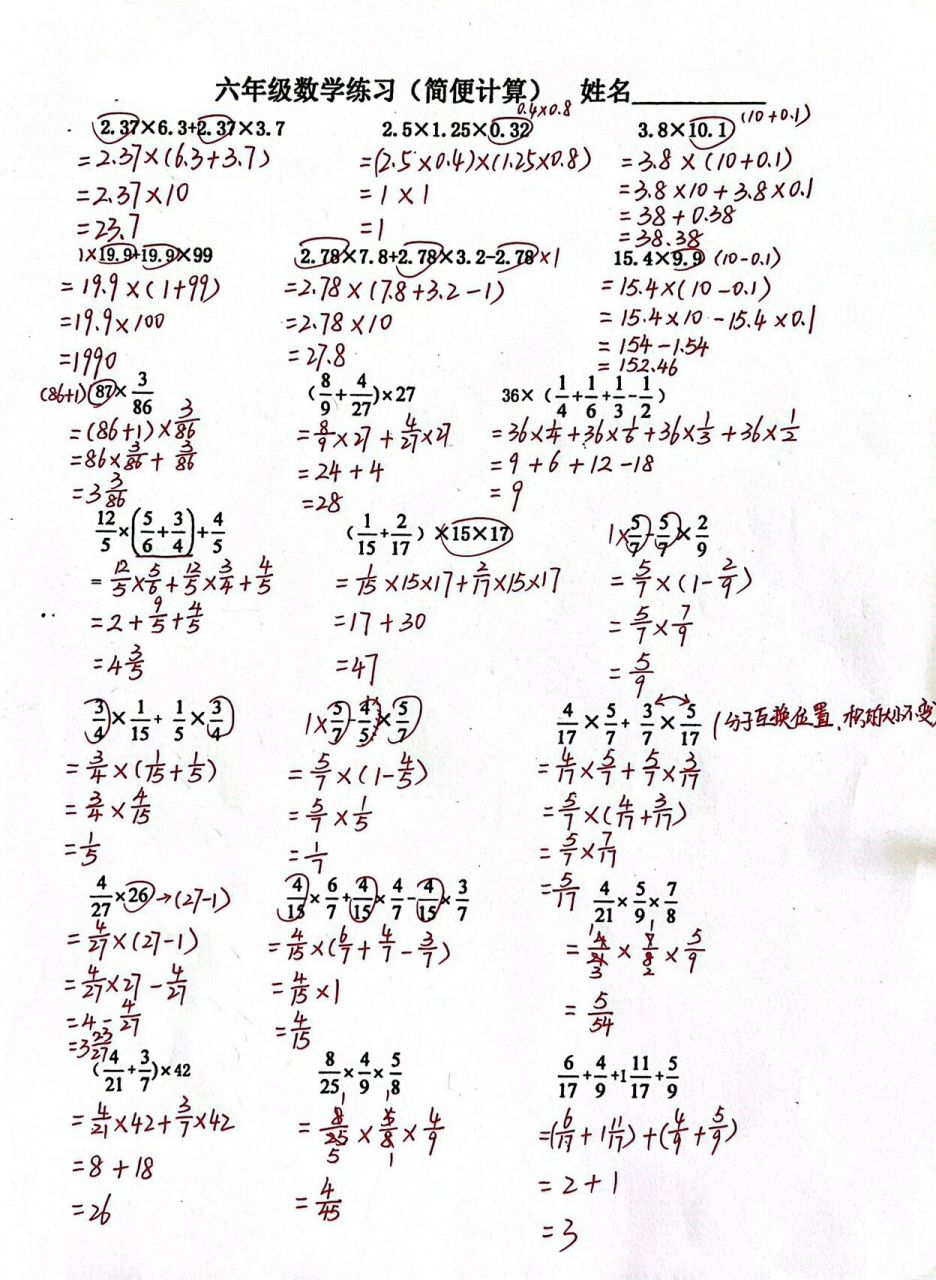 六年级数学练习（简便计算） 姓名__________
2.37×6.3+2.37×3.7
=2.37×(6.3+3.7)
=2.37×10
=23.7
0.4×0.8
2.5×1.25×0.32
=(2.5×0.4)×(1.25×0.8)
=1×1
=1
(10+0.1)
3.8×10.1
=3.8×(10+0.1)
=3.8×10+3.8×0.1
=38+0.38
=38.38
1×19.9+19.9×99
=19.9×(1+99)
=19.9×100
=1990
2.78×7.8+2.78×3.2-2.78×1
=2.78×(7.8+3.2-1)
=2.78×10
=27.8
15.4×9.9 (10-0.1)
=15.4×(10-0.1)
=15.4×10-15.4×0.1
=154-1.54
=152.46
(86+1) 87×3/86
=(86+1)×3/86
=86×3/86+3/86
=3 3/86
(8/9+4/27)×27
=8/9×27+4/27×27
=24+4
=28
36×(1/4+1/6+1/3-1/2)
=36×1/4+36×1/6+36×1/3+36×1/2
=9+6+12-18
=9
12/5×(5/6+3/4)+4/5
=12/5×5/6+12/5×3/4+4/5
=2+9/5+4/5
=4 3/5
(1/15+2/17)×15×17
=1/15×15×17+2/17×15×17
=17+30
=47
1×5/7-5/7×2/9
=5/7×(1-2/9)
=5/7×7/9
=5/9
3/4×1/15+1/5×3/4
=3/4×(1/15+1/5)
=3/4×4/15
=1/5
1×5/7-4/5×5/7
=5/7×(1-4/5)
=5/7×1/5
=1/7
4/17×5/7+3/7×5/17 (分子互换位置,积的大小不变)
=4/17×5/7+5/7×3/17
=5/7×(4/17+3/17)
=5/7×7/17
=5/17
4/27×26→(27-1)
=4/27×(27-1)
=4/27×27-4/27
=4-4/27
=3 23/27
4/15×6/7+4/15×4/7-4/15×3/7
=4/15×(6/7+4/7-3/7)
=4/15×1
=4/15
4/21×5/9×7/8
=4/21×7/8×5/9
1 1
3 2
=5/54
(4/21+3/7)×42
=4/21×42+3/7×42
=8+18
=26
8/25×4/9×5/8
=8/25×5/8×4/9
1 1
5 1
=4/45
6/17+4/9+1 11/17+5/9
=(6/17+1 11/17)+(4/9+5/9)
=2+1
=3